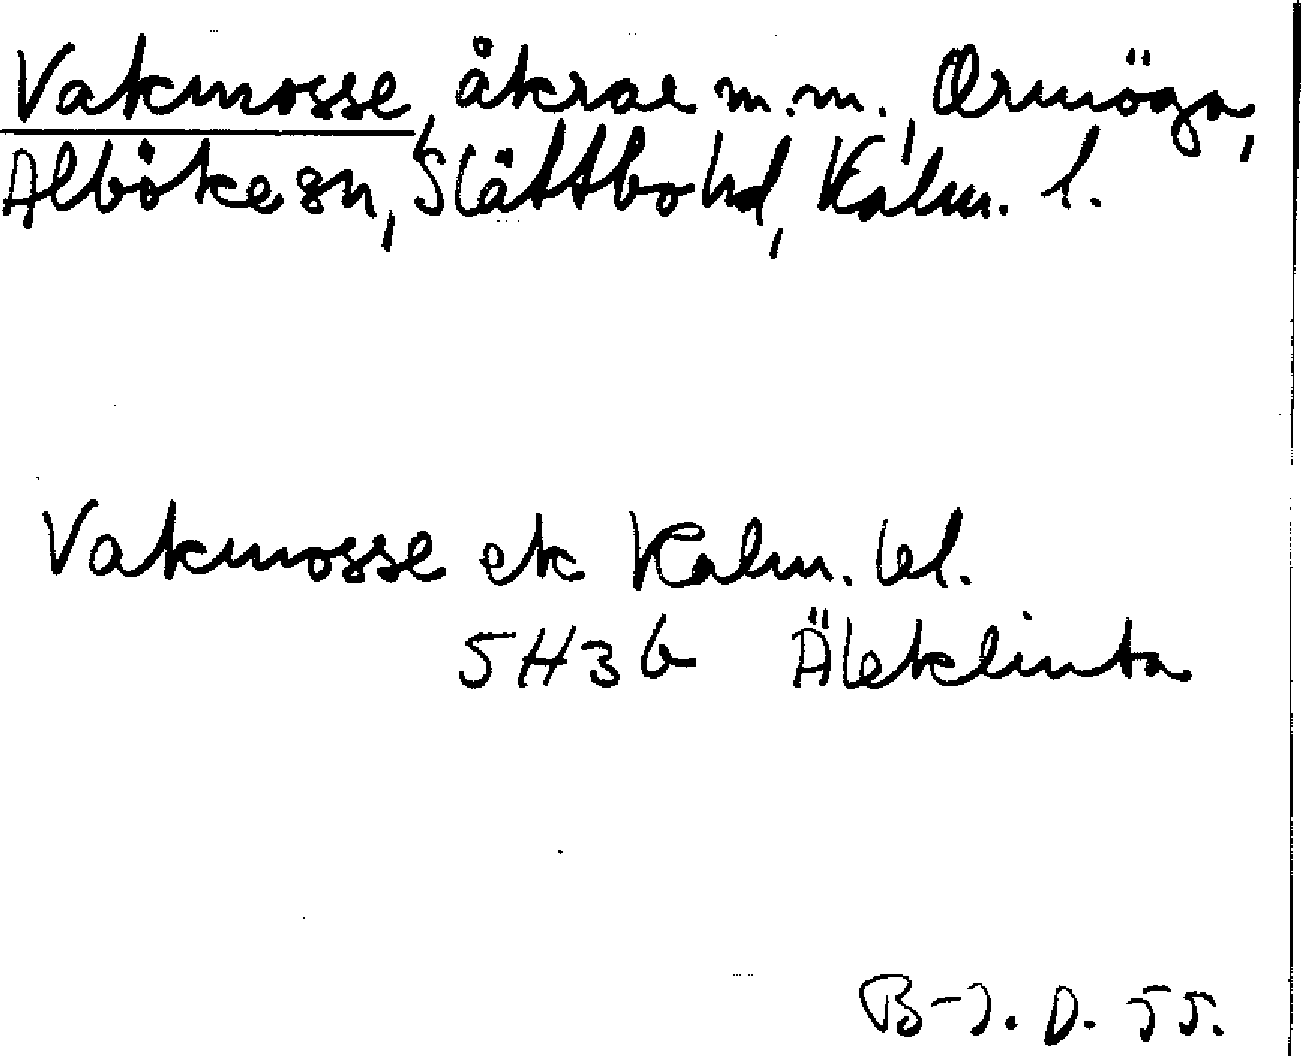 Vakmosse, åkrar m.m., Ormöga,
Alböke sn, Slättbo hd, Kalm. l.
Vakmosse ek Kalm. bl.
5H3b Äleklinta
B-J. D. 55.